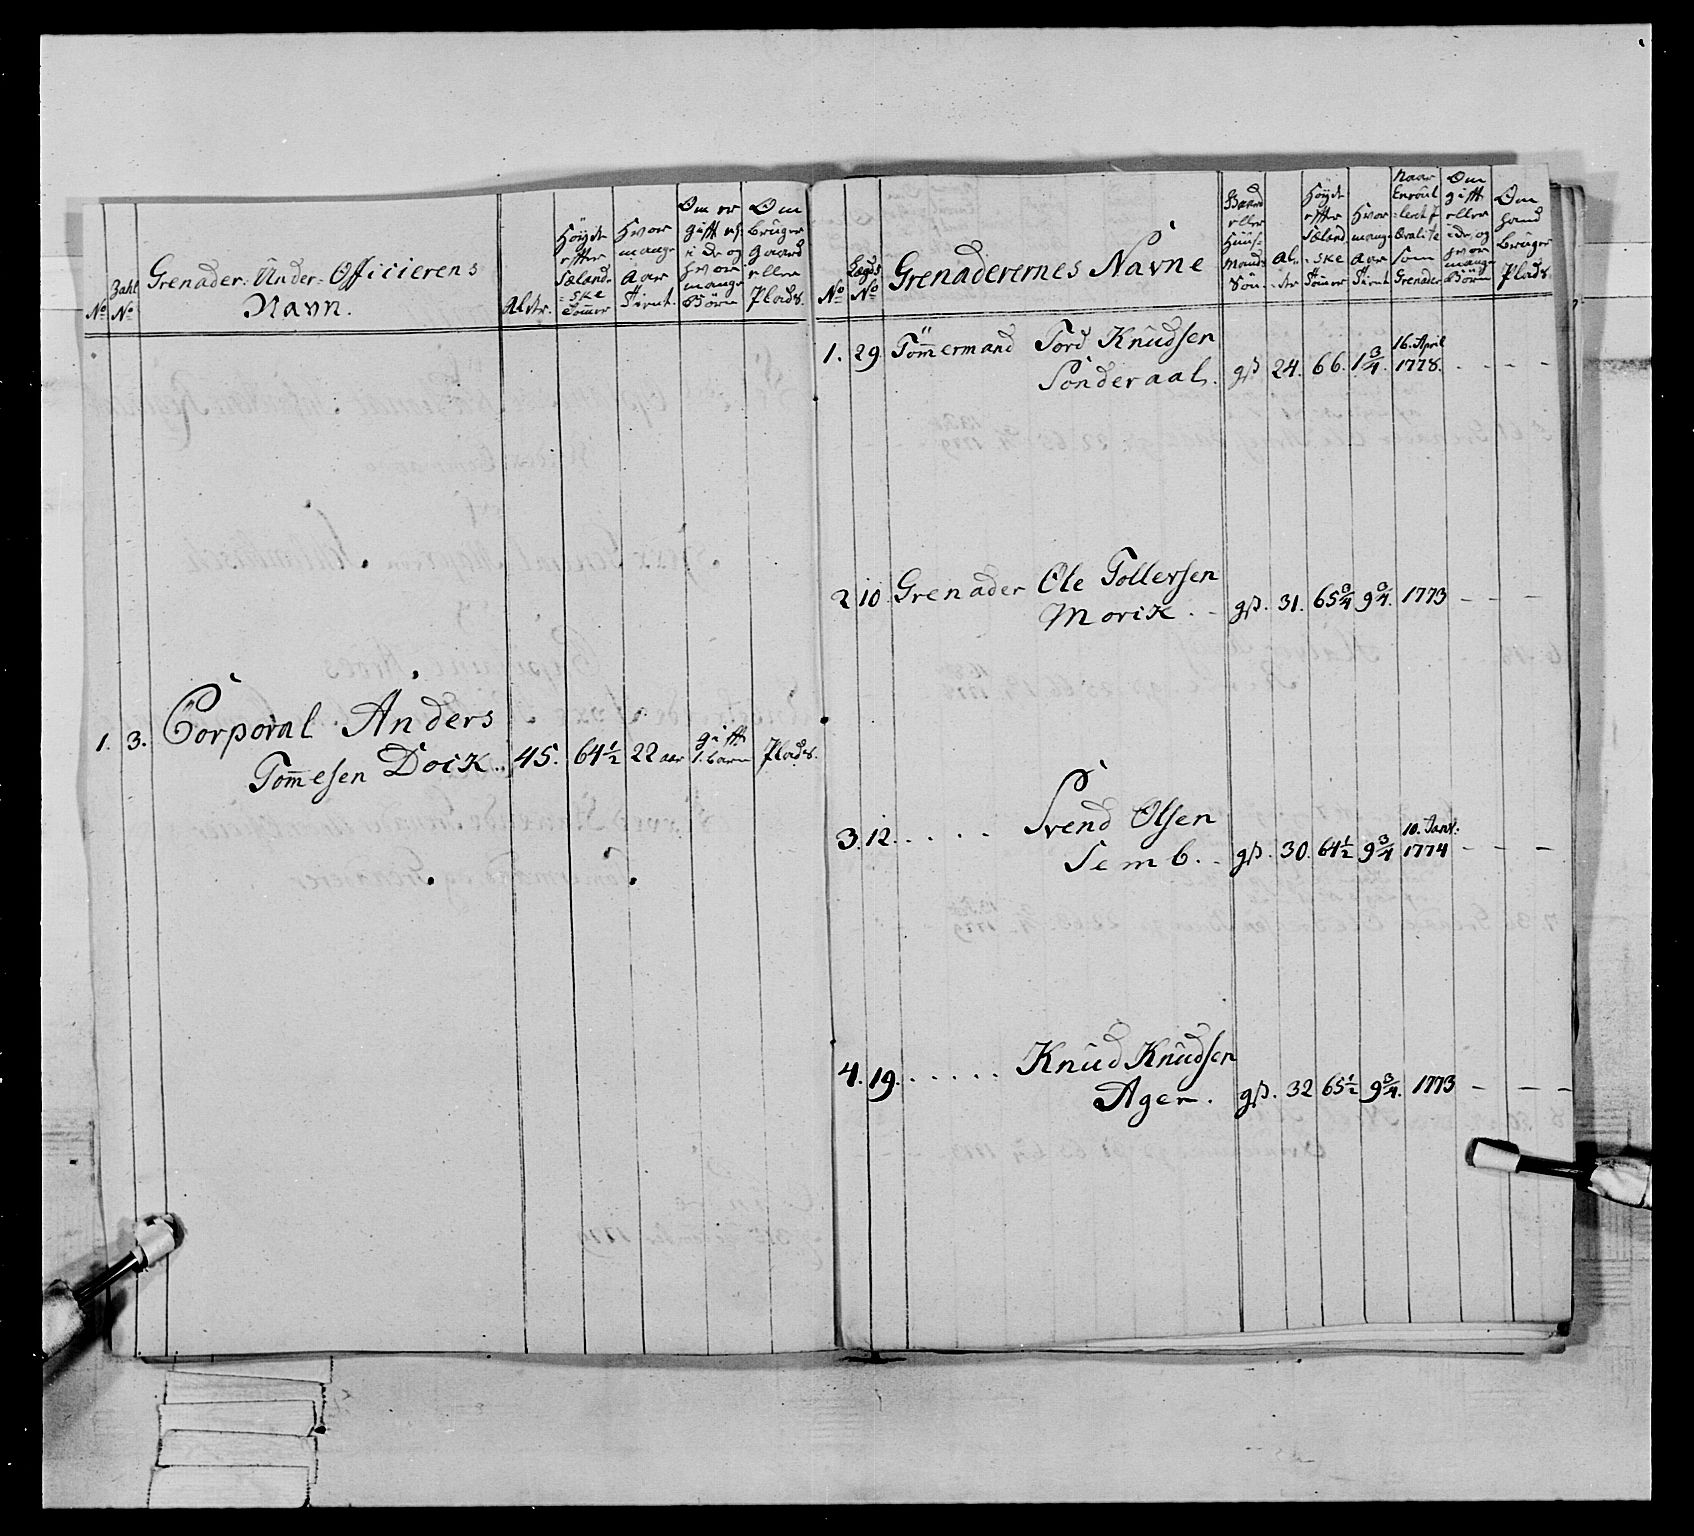 No
Zahl No
Grenader-Under-Officierens
Navn.
Alder.
Høyde efter Sælandske Tommer
Hvor mange Aar Tient.
Om er gift og hvor mange Børn
Om bruger Gaard eller Plads.
1. 3. Corporal Anders
Tom̅esen Doik. 45. 64½ 22 aar gift 1. barn Plads.
No
Lægds No
Grenaderernes Navne
Gaard eller Huusmands Søn
Alder
Høyde efter Sælandske Tom̅er
Hvor mange Aar Tient
Naar Som Grenader
Om gift eller hvor mange Børn
Om hand bruger Plads.
1. 29. Tøm̅ermand Tord Knudsen
Sønderaal. gβ 24. 66. 1¾. 16. April 1778. - - -
2 10. Grenader Ole Tollersen
Morik. - gβ. 31. 65¾ 9¾. 1773 - - -
3. 12. . . . . Svend Olsen
Semb. . gβ. 30. 64½ 9¾ 10. Janv: 1774 - - -
4. 19. . . . . . Knud Knudsen
Ager. gβ. 32 65½ 9¾. 1773 - - -